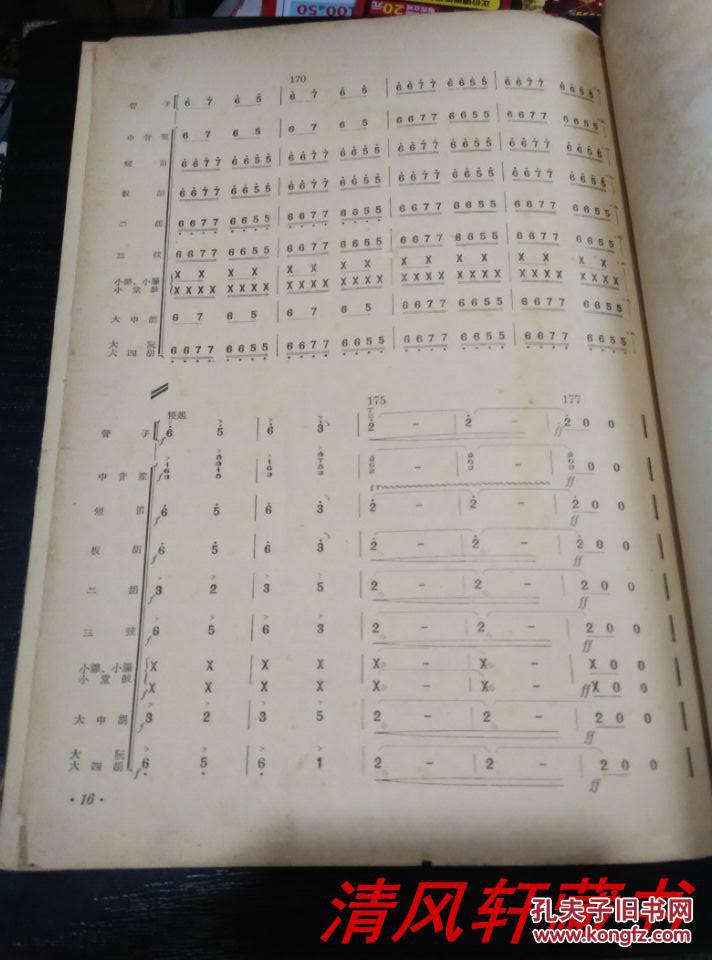 170
管子 6 7 6 5 | 6 7 6 5 | 6677 6655 | 6677 6655
中音笙 6 7 6 5 | 6 7 6 5 | 6677 6655 | 6677 6655
短笛 6677 6655 | 6677 6655 | 6677 6655 | 6677 6655
板胡 6677 6655 | 6677 6655 | 6677 6655 | 6677 6655
二胡 6677 6655 | 6677 6655 | 6677 6655 | 6677 6655
三弦 6677 6655 | 6677 6655 | 6677 6655 | 6677 6655
小镲、小锣 X X X X | X X X X | X X X X | X X X X
小堂鼓 XXXX XXXX | XXXX XXXX | XXXX XXXX | XXXX XXXX
大中胡 6 7 6 5 | 6 7 6 5 | 6677 6655 | 6677 6655
大阮
大四胡 6677 6655 | 6677 6655 | 6677 6655 | 6677 6655
175 177
慢起
管子 f 6 5 | 6 3 | 2 - | 2 - | ff 2 0 0
中音笙 f
tr
ff 0 0
短笛 f 6 5 | 6 3 | 2 - | 2 - | ff 2 0 0
板胡 f 6 5 | 6 3 | 2 - | 2 - | ff 2 0 0
二胡 f 3 2 | 3 5 | 2 - | 2 - | ff 2 0 0
三弦 f 6 5 | 6 3 | 2 - | 2 - | ff 2 0 0
小镲、小锣 X X | X X | X - | X - | X 0 0
小堂鼓 f X X | X X | X - | X - | ff X 0 0
大中胡 f 3 2 | 3 5 | 2 - | 2 - | ff 2 0 0
大阮
大四胡 f 6 5 | 6 1 | 2 - | 2 - | ff 2 0 0
·16·
清风轩藏书
孔夫子旧书网
www.kongfz.com